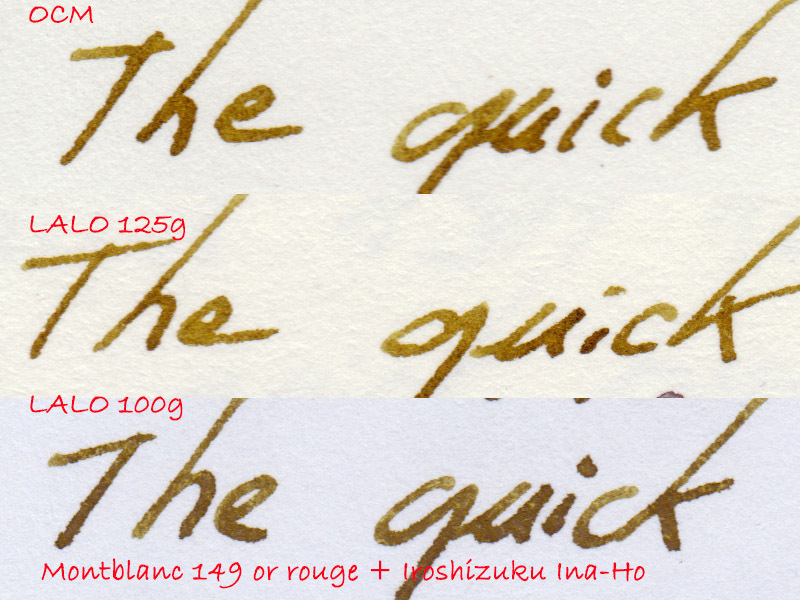 OCM
The quick
LALO 125g
The quick
LALO 100g
The quick
Montblanc 149 or rouge + Iroshizuku Ina-Ho